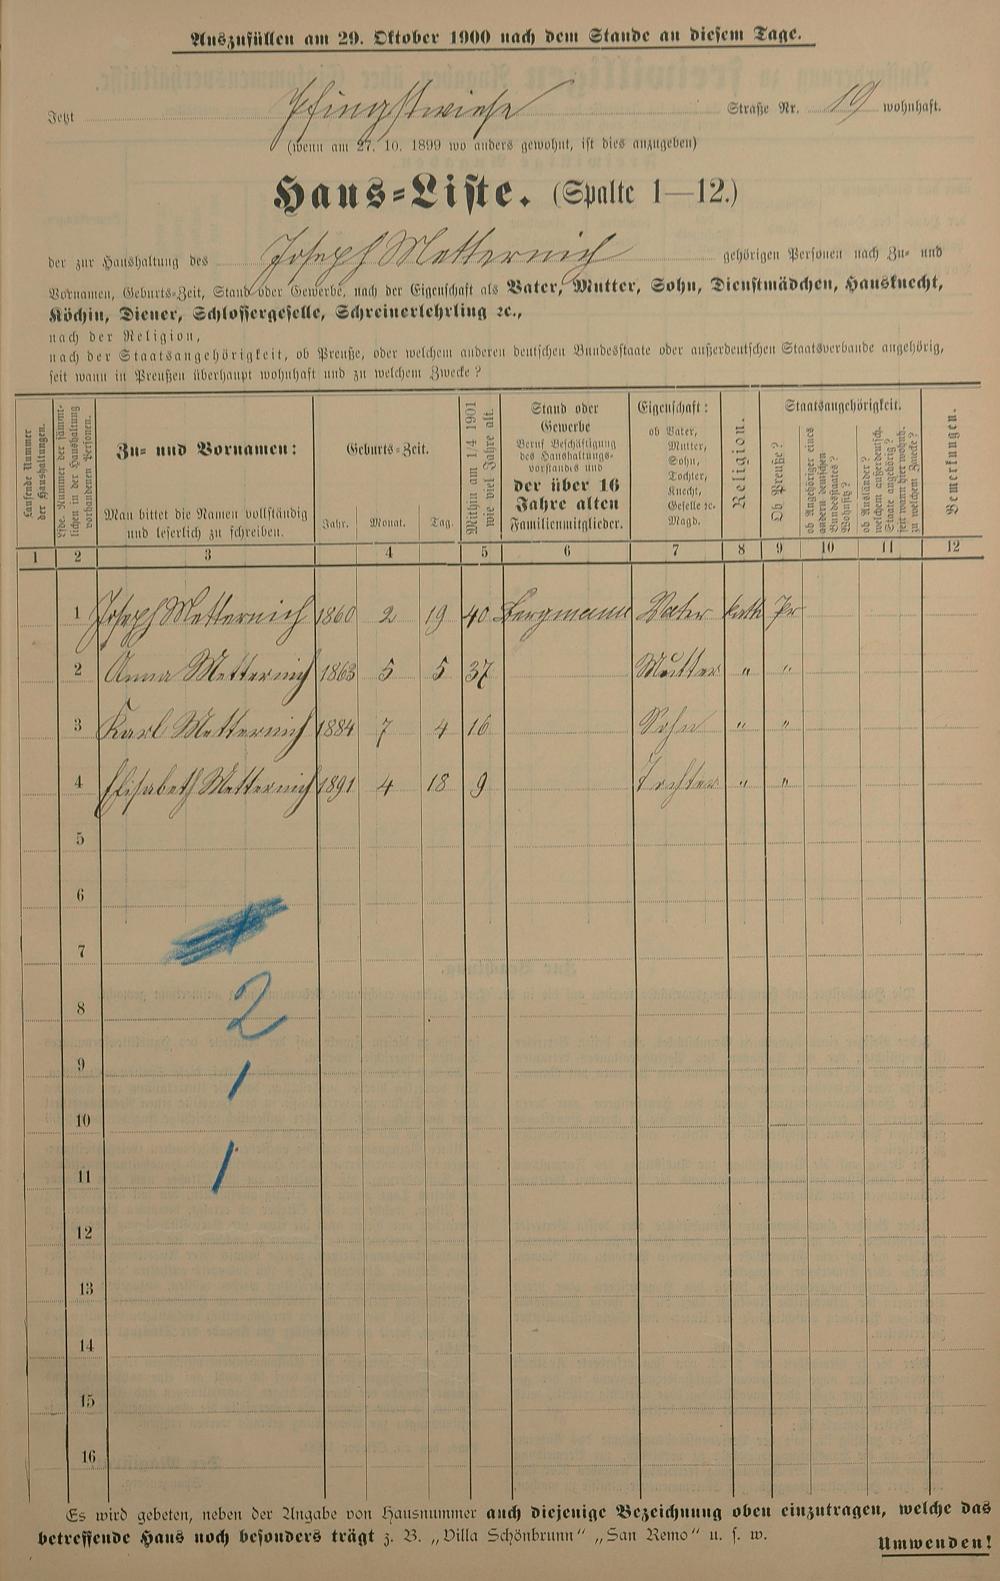 Auszufüllen am 29. Oktober 1900 nach dem Stande an diesem Tage.
Jetzt Pfingstwiese Straße Nr. 19 wohnhaft.
(wenn am 27. 10. 1899 wo anders gewohnt, ist dies anzugeben)
Haus-Liste. (Spalte 1—12.)
der zur Haushaltung des Joseph Metternich gehörigen Personen nach Zu- und
Vornamen, Geburts-Zeit, Stand oder Gewerbe, nach der Eigenschaft als Vater, Mutter, Sohn, Dienstmädchen, Hausknecht,
Köchin, Diener, Schlossergeselle, Schreinerlehrling ꝛc.,
nach der Religion,
nach der Staatsangehörigkeit, ob Preuße, oder welchem anderen deutschen Bundesstaate oder außerdeutschen Staatsverbande angehörig,
seit wann in Preußen überhaupt wohnhaft und zu welchem Zwecke?
Laufende Nummer
der Haushaltungen.
Lfde. Nummer der sämmt-
lichen in der Haushaltung
vorhandenen Personen.
Zu- und Vornamen:
Man bittet die Namen vollständig
und leserlich zu schreiben.
Geburts-Zeit.
Jahr. Monat. Tag.
Mithin am 1/4 1901
wie viel Jahre alt.
Stand oder
Gewerbe
Beruf Beschäftigung
des Haushaltungs-
vorstandes und
der über 16
Jahre alten
Familienmitglieder.
Eigenschaft:
ob Vater,
Mutter,
Sohn,
Tochter,
Knecht,
Geselle ꝛc.
Magd.
Religion.
Staatsangehörigkeit.
Ob Preuße?
ob Angehöriger eines
andern deutschen
Bundesstaates?
Wohnsitz?
ob Ausländer?
welchem außerdeutsch.
Staate angehörig?
seit wann hier wohnh.
zu welchem Zwecke?
Bemerkungen.
1 2 3 4 5 6 7 8 9 10 11 12
1 Joseph Metternich 1860 2 19 40 Bergmann Vater kath Pr
2 Anna Metternich 1863 5 5 37 Mutter " "
3 Karl Metternich 1884 7 4 16 Sohn " "
4 Elisabeth Metternich 1891 4 18 9 Tochter " "
5
6
7
8 2
9 1
10
11 1
12
13
14
15
16
Es wird gebeten, neben der Angabe von Hausnummer auch diejenige Bezeichnung oben einzutragen, welche das
betreffende Haus noch besonders trägt z. B. „Villa Schönbrunn" „San Remo" u. s. w.
Umwenden!